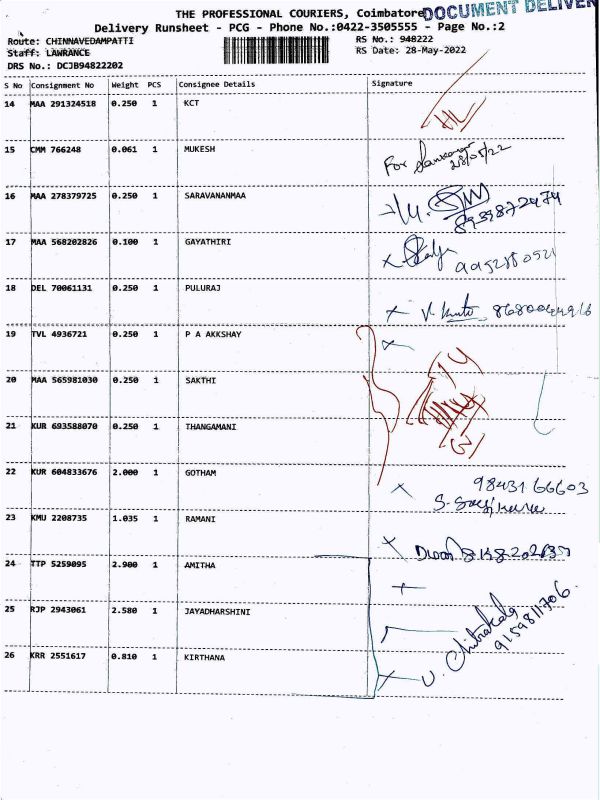 THE PROFESSIONAL COURIERS, Coimbatore
DOCUMENT DELIVER
Delivery Runsheet - PCG - Phone No.:0422-3505555 - Page No.:2
Route: CHINNAVEDAMPATTI RS No.: 948222
Staff: LAWRANCE RS Date: 28-May-2022
DRS No.: DCJB94822202
S No Consignment No Weight PCS Consignee Details Signature
14 MAA 291324518 0.250 1 KCT
15 CMM 766248 0.061 1 MUKESH For 28/05/22
16 MAA 278379725 0.250 1 SARAVANANMAA
17 MAA 568202826 0.100 1 GAYATHIRI
18 DEL 70061131 0.250 1 PULURAJ
19 TVL 4936721 0.250 1 P A AKKSHAY
20 MAA 565981030 0.250 1 SAKTHI
21 KUR 693588070 0.250 1 THANGAMANI
22 KUR 604833676 2.000 1 GOTHAM 98431 66603
23 KMU 2208735 1.035 1 RAMANI
24 TTP 5259095 2.900 1 AMITHA
25 RJP 2943061 2.580 1 JAYADHARSHINI
26 KRR 2551617 0.810 1 KIRTHANA U. Chitrakala
9159811706